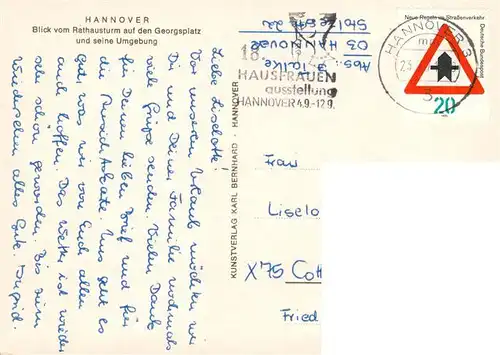 HANNOVER
Blick vom Rathausturm auf den Georgsplatz
und seine Umgebung
Liebe Liselotte!
Von unserem Urlaub möchten wir
Dir und Deiner Familie nochmals
viele Grüße senden. Vielen Dank
für Deinen lieben Brief und für
die Ansichtskarte. Uns geht es
gut, was wir von Euch allen
auch hoffen. Das Wetter ist wieder
sehr schön geworden. Bis zum
Wiedersehen alles Gute. Ingrid.
KUNSTVERLAG KARL BERNHARD · HANNOVER
Abs.: I.
03 HANNOVER
22
18
HAUSFRAUEN
ausstellung
HANNOVER 4.9.-12.9.
HANNOVER 3
Neue Regeln im Straßenverkehr
Deutsche Bundespost
20
Frau
Liselo
X75 Cott
Fried